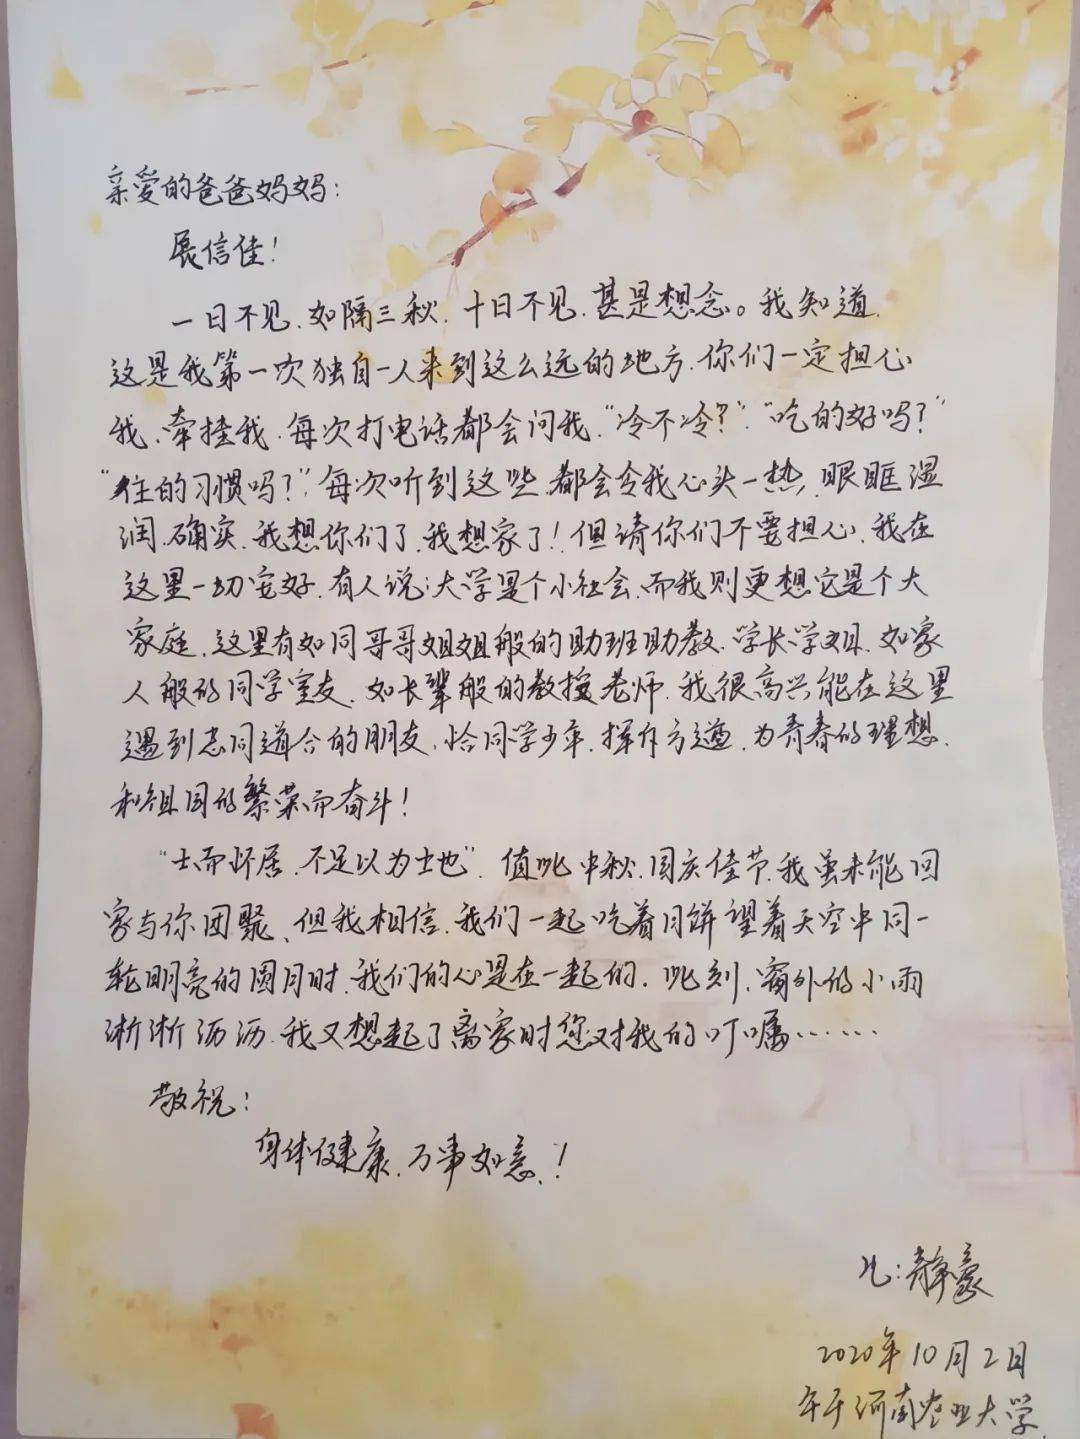 亲爱的爸爸妈妈：
展信佳！
一日不见，如隔三秋，十日不见，甚是想念。我知道，
这是我第一次独自一人来到这么远的地方，你们一定担心
我、牵挂我，每次打电话都会问我，“冷不冷？”，“吃的好吗？”
“住的习惯吗？”，每次听到这些，都会令我心头一热，眼眶湿
润，确实，我想你们了，我想家了！但请你们不要担心，我在
这里一切安好，有人说：大学是个小社会，而我则更想它是个大
家庭，这里有如同哥哥姐姐般的助班助教，学长学姐，如家
人般的同学室友，如长辈般的教授老师，我很高兴能在这里
遇到志同道合的朋友，恰同学少年，挥斥方遒，为青春的理想，
和祖国的繁荣而奋斗！
“士而怀居，不足以为士也”，值此中秋，国庆佳节，我虽未能回
家与你团聚、但我相信，我们一起吃着月饼望着天空中同一
轮明亮的圆月时，我们的心是在一起的．此刻，窗外的小雨
淅淅沥沥，我又想起了离家时您对我的叮嘱……
敬祝：
身体健康，万事如意！
儿：静豪
2020年10月2日
午于河南农业大学